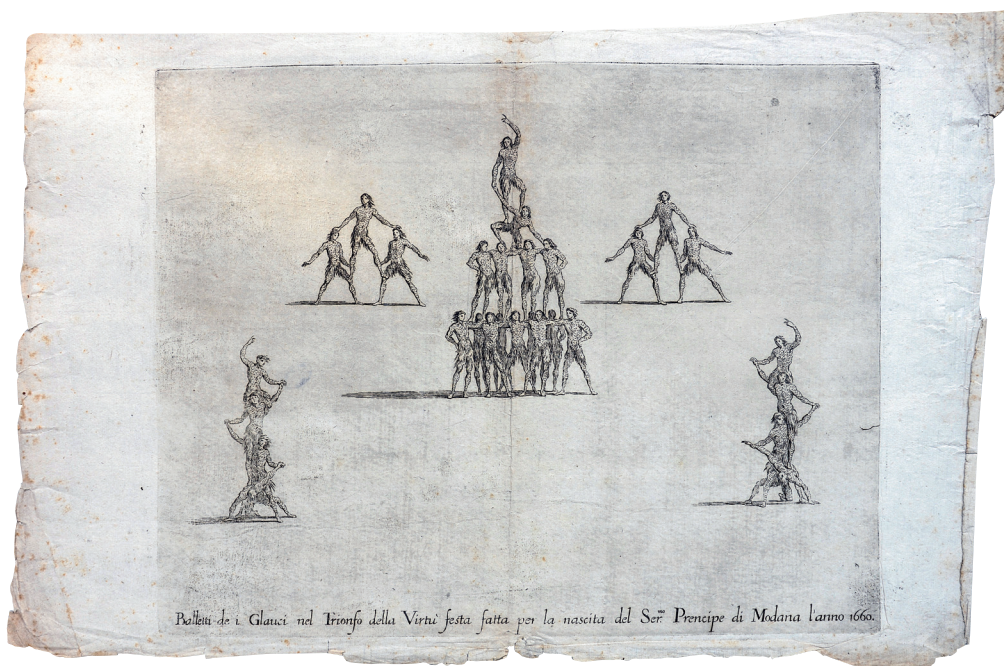 Balletti de i Glauci nel Trionfo della Virtù festa fatta per la nascita del Ser.mo Prencipe di Modana l'anno 1660.